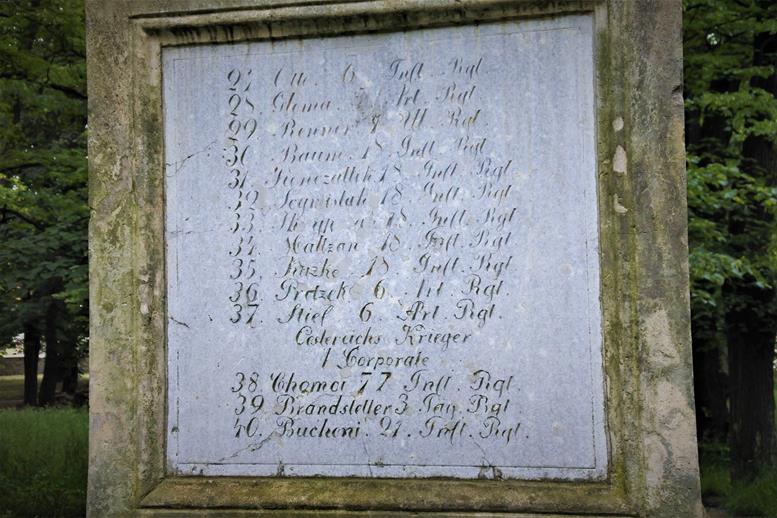 27. Otto 6 Inft. Rgt
28. Glema Art. Rgt
29. Renner 7 Ul. Rgt
30. Baum. 18. Inft. Rgt
31. 18. Inft. Rgt
32. 18. Inft. Rgt
33. 18. Inft. Rgt
34. Maltzan 18. Inft. Rgt
35. Kuzke 18. Inft. Rgt
36. Prdzek 6. Art. Rgt
37. Stiel 6. Art. Rgt.
Oesterichs Krieger
1 Corporale
38. Chomoi 77 Inft. Rgt.
39. Brandstetter 3 Jag. Rgt
40. Bucheni. 21. Inft. Rgt.